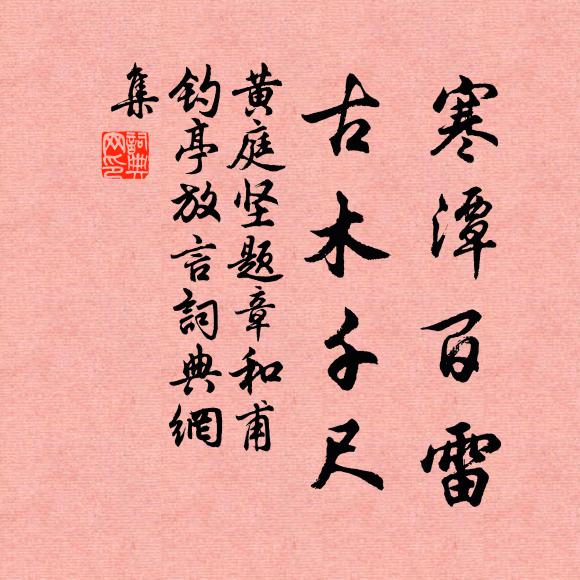 寒潭百雷
古木千尺
黄庭坚题章和甫
钓亭放言詞典網
集
詞典網印